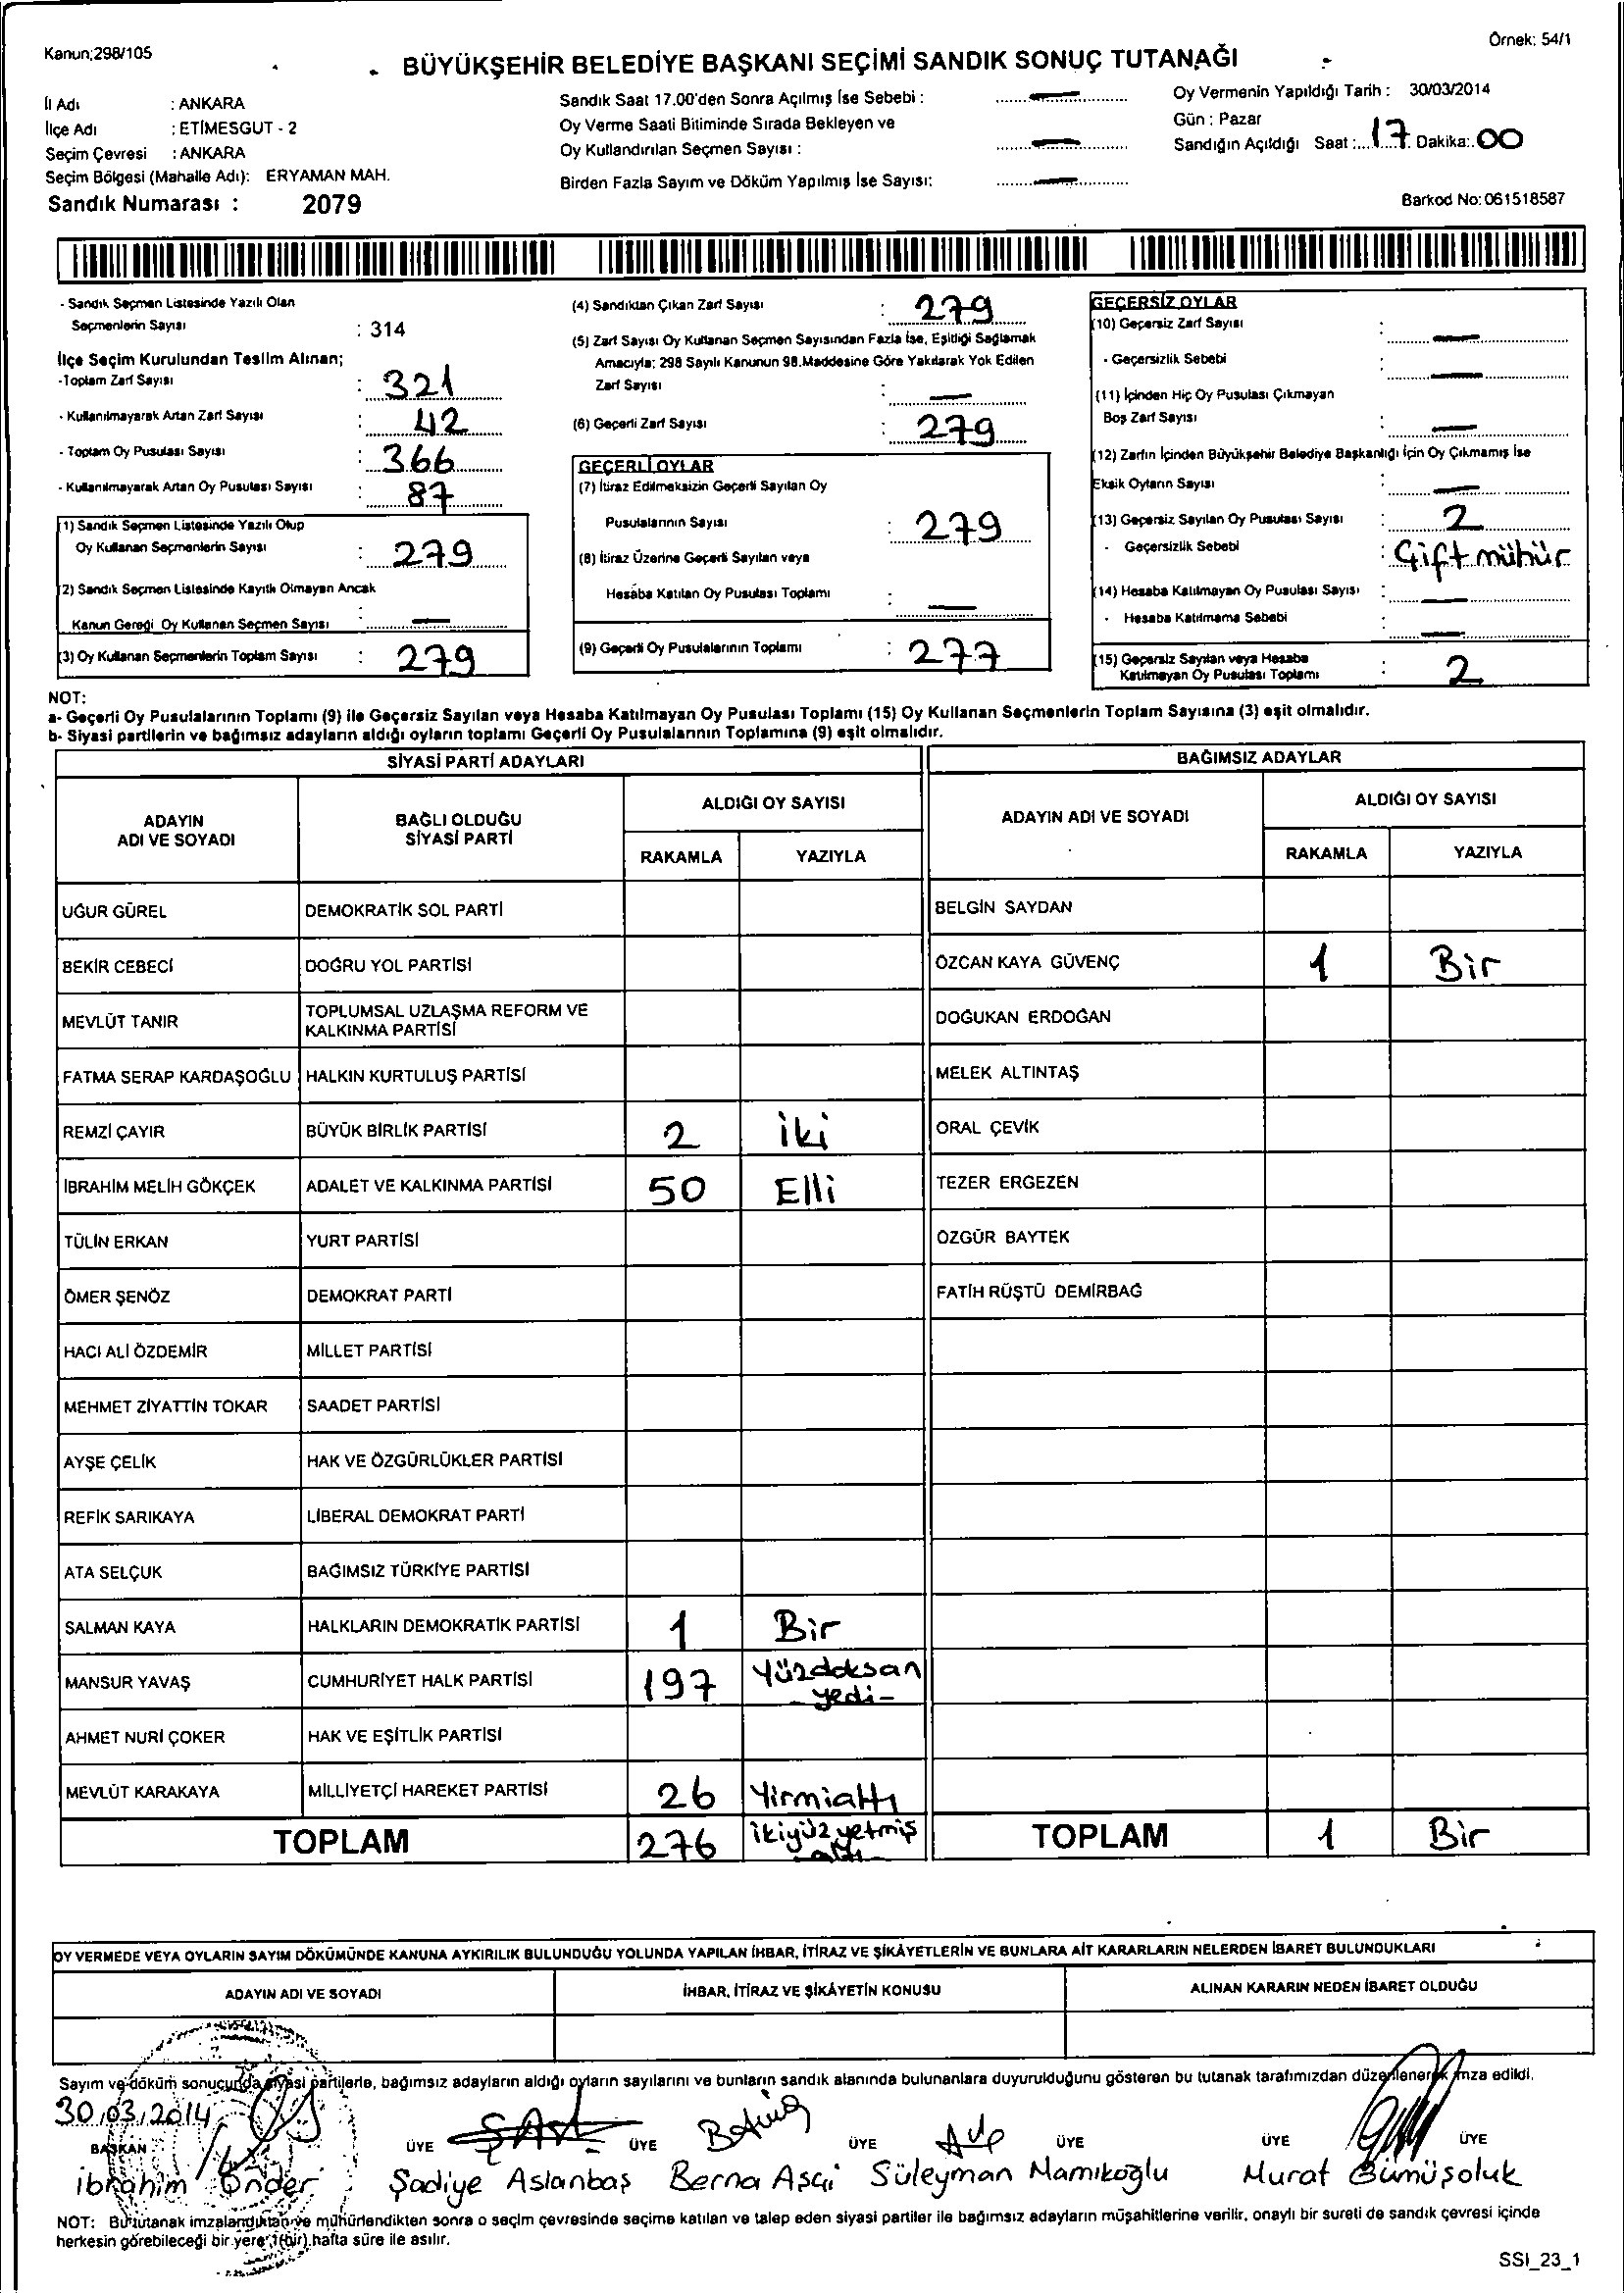 Kanun;298/105
Örnek: 54/1
BÜYÜKŞEHİR BELEDİYE BAŞKANI SEÇİMİ SANDIK SONUÇ TUTANAĞI
İl Adı : ANKARA
İlçe Adı : ETİMESGUT - 2
Seçim Çevresi : ANKARA
Seçim Bölgesi (Mahalle Adı): ERYAMAN MAH.
Sandık Numarası : 2079
Sandık Saat 17.00'den Sonra Açılmış İse Sebebi :
Oy Verme Saati Bitiminde Sırada Bekleyen ve
Oy Kullandırılan Seçmen Sayısı :
Birden Fazla Sayım ve Döküm Yapılmış İse Sayısı:
Oy Vermenin Yapıldığı Tarih : 30/03/2014
Gün : Pazar
Sandığın Açıldığı Saat :....17.. Dakika:.00
Barkod No: 061518587
- Sandık Seçmen Listesinde Yazılı Olan
Seçmenlerin Sayısı : 314
İlçe Seçim Kurulundan Teslim Alınan;
-Toplam Zarf Sayısı : 321
- Kullanılmayarak Artan Zarf Sayısı : 42
- Toplam Oy Pusulası Sayısı : 366
- Kullanılmayarak Artan Oy Pusulası Sayısı : 87
(1) Sandık Seçmen Listesinde Yazılı Olup
Oy Kullanan Seçmenlerin Sayısı : 279
(2) Sandık Seçmen Listesinde Kayıtlı Olmayan Ancak
Kanun Gereği Oy Kullanan Seçmen Sayısı : —
(3) Oy Kullanan Seçmenlerin Toplam Sayısı : 279
(4) Sandıktan Çıkan Zarf Sayısı : 279
(5) Zarf Sayısı Oy Kullanan Seçmen Sayısından Fazla İse, Eşitliği Sağlamak
Amacıyla; 298 Sayılı Kanunun 98.Maddesine Göre Yakılarak Yok Edilen
Zarf Sayısı : —
(6) Geçerli Zarf Sayısı : 279
GEÇERLİ OYLAR
(7) İtiraz Edilmeksizin Geçerli Sayılan Oy
Pusulalarının Sayısı : 279
(8) İtiraz Üzerine Geçerli Sayılan veya
Hesaba Katılan Oy Pusulası Toplamı : —
(9) Geçerli Oy Pusulalarının Toplamı : 277
GEÇERSİZ OYLAR
(10) Geçersiz Zarf Sayısı : —
- Geçersizlik Sebebi : —
(11) İçinden Hiç Oy Pusulası Çıkmayan
Boş Zarf Sayısı : —
(12) Zarfın İçinden Büyükşehir Belediye Başkanlığı İçin Oy Çıkmamış İse
Eksik Oyların Sayısı : —
(13) Geçersiz Sayılan Oy Pusulası Sayısı : 2
- Geçersizlik Sebebi : Çift mühür
(14) Hesaba Katılmayan Oy Pusulası Sayısı : —
- Hesaba Katılmama Sebebi : —
(15) Geçersiz Sayılan veya Hesaba
Katılmayan Oy Pusulası Toplamı : 2
NOT:
a- Geçerli Oy Pusulalarının Toplamı (9) ile Geçersiz Sayılan veya Hesaba Katılmayan Oy Pusulası Toplamı (15) Oy Kullanan Seçmenlerin Toplam Sayısına (3) eşit olmalıdır.
b- Siyasi partilerin ve bağımsız adayların aldığı oyların toplamı Geçerli Oy Pusulalarının Toplamına (9) eşit olmalıdır.
SİYASİ PARTİ ADAYLARI
ADAYIN ADI VE SOYADI
BAĞLI OLDUĞU SİYASİ PARTİ
ALDIĞI OY SAYISI
RAKAMLA YAZIYLA
UĞUR GÜREL DEMOKRATİK SOL PARTİ
BEKİR CEBECİ DOĞRU YOL PARTİSİ
MEVLÜT TANIR TOPLUMSAL UZLAŞMA REFORM VE
KALKINMA PARTİSİ
FATMA SERAP KARDAŞOĞLU HALKIN KURTULUŞ PARTİSİ
REMZİ ÇAYIR BÜYÜK BİRLİK PARTİSİ 2 iki
İBRAHİM MELİH GÖKÇEK ADALET VE KALKINMA PARTİSİ 50 Elli
TÜLİN ERKAN YURT PARTİSİ
ÖMER ŞENÖZ DEMOKRAT PARTİ
HACI ALİ ÖZDEMİR MİLLET PARTİSİ
MEHMET ZİYATTİN TOKAR SAADET PARTİSİ
AYŞE ÇELİK HAK VE ÖZGÜRLÜKLER PARTİSİ
REFİK SARIKAYA LİBERAL DEMOKRAT PARTİ
ATA SELÇUK BAĞIMSIZ TÜRKİYE PARTİSİ
SALMAN KAYA HALKLARIN DEMOKRATİK PARTİSİ 1 Bir
MANSUR YAVAŞ CUMHURİYET HALK PARTİSİ 197 Yüzdoksan
- yedi -
AHMET NURİ ÇOKER HAK VE EŞİTLİK PARTİSİ
MEVLÜT KARAKAYA MİLLİYETÇİ HAREKET PARTİSİ 26 Yirmialtı
TOPLAM 276 ikiyüzyetmiş
- altı -
BAĞIMSIZ ADAYLAR
ADAYIN ADI VE SOYADI
ALDIĞI OY SAYISI
RAKAMLA YAZIYLA
BELGİN SAYDAN
ÖZCAN KAYA GÜVENÇ 1 Bir
DOĞUKAN ERDOĞAN
MELEK ALTINTAŞ
ORAL ÇEVİK
TEZER ERGEZEN
ÖZGÜR BAYTEK
FATİH RÜŞTÜ DEMİRBAĞ
TOPLAM 1 Bir
OY VERMEDE VEYA OYLARIN SAYIM DÖKÜMÜNDE KANUNA AYKIRILIK BULUNDUĞU YOLUNDA YAPILAN İHBAR, İTİRAZ VE ŞİKAYETLERİN VE BUNLARA AİT KARARLARIN NELERDEN İBARET BULUNDUKLARI
ADAYIN ADI VE SOYADI İHBAR, İTİRAZ VE ŞİKAYETİN KONUSU ALINAN KARARIN NEDEN İBARET OLDUĞU
Sayım ve döküm sonucunda siyasi partilerle, bağımsız adayların aldığı oyların sayılarını ve bunların sandık alanında bulunanlara duyurulduğunu gösteren bu tutanak tarafımızdan düzenlenerek imza edildi.
30/03/2014
BAŞKAN ÜYE ÜYE ÜYE ÜYE ÜYE ÜYE
ibrahim Önder Şadiye Aslanbaş Berna Aşçı Süleyman Namıkoğlu Murat Gümüşoluk
NOT: Bu tutanak imzalandıktan ve mühürlendikten sonra o seçim çevresinde seçime katılan ve talep eden siyasi partiler ile bağımsız adayların müşahitlerine verilir, onaylı bir sureti de sandık çevresi içinde
herkesin görebileceği bir yere 1(bir) hafta süre ile asılır.
SSI_23_1